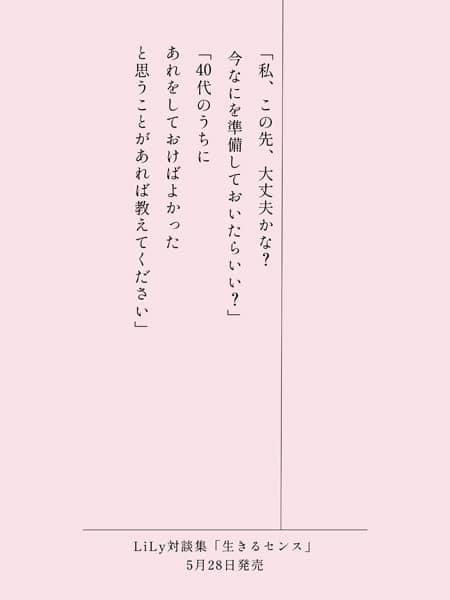 「私、この先、大丈夫かな?
今なにを準備しておいたらいい?」
「40代のうちに
あれをしておけばよかった
と思うことがあれば教えてください」
LiLy対談集「生きるセンス」
5月28日発売